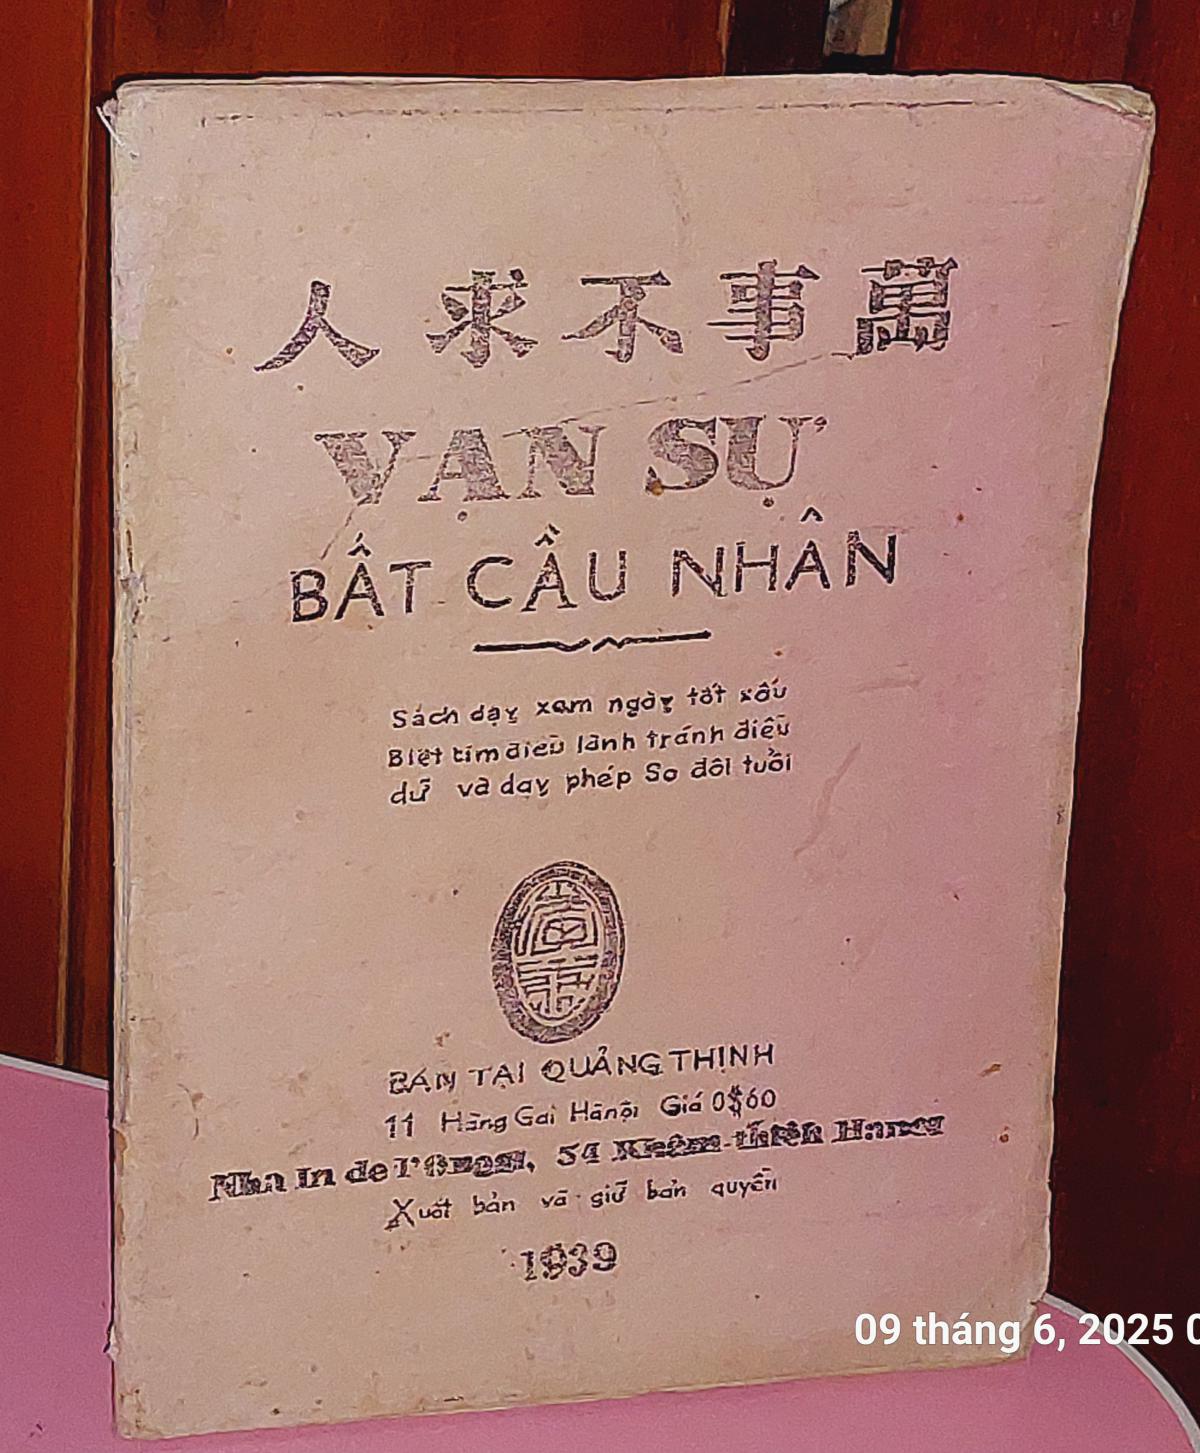 人求不事萬
VẠN SỰ
BẤT CẦU NHÂN
Sách dạy xem ngày tốt xấu
Biết tìm điều lành tránh điều
dữ và dạy phép So đôi tuổi
BÁN TẠI QUẢNG THỊNH
11 Hàng Gai Hànội Giá 0$60
Nhà In de l'Ouest, 54 Khâm-thiên Hanoi
Xuất bản và giữ bản quyền
1939
09 tháng 6, 2025 0